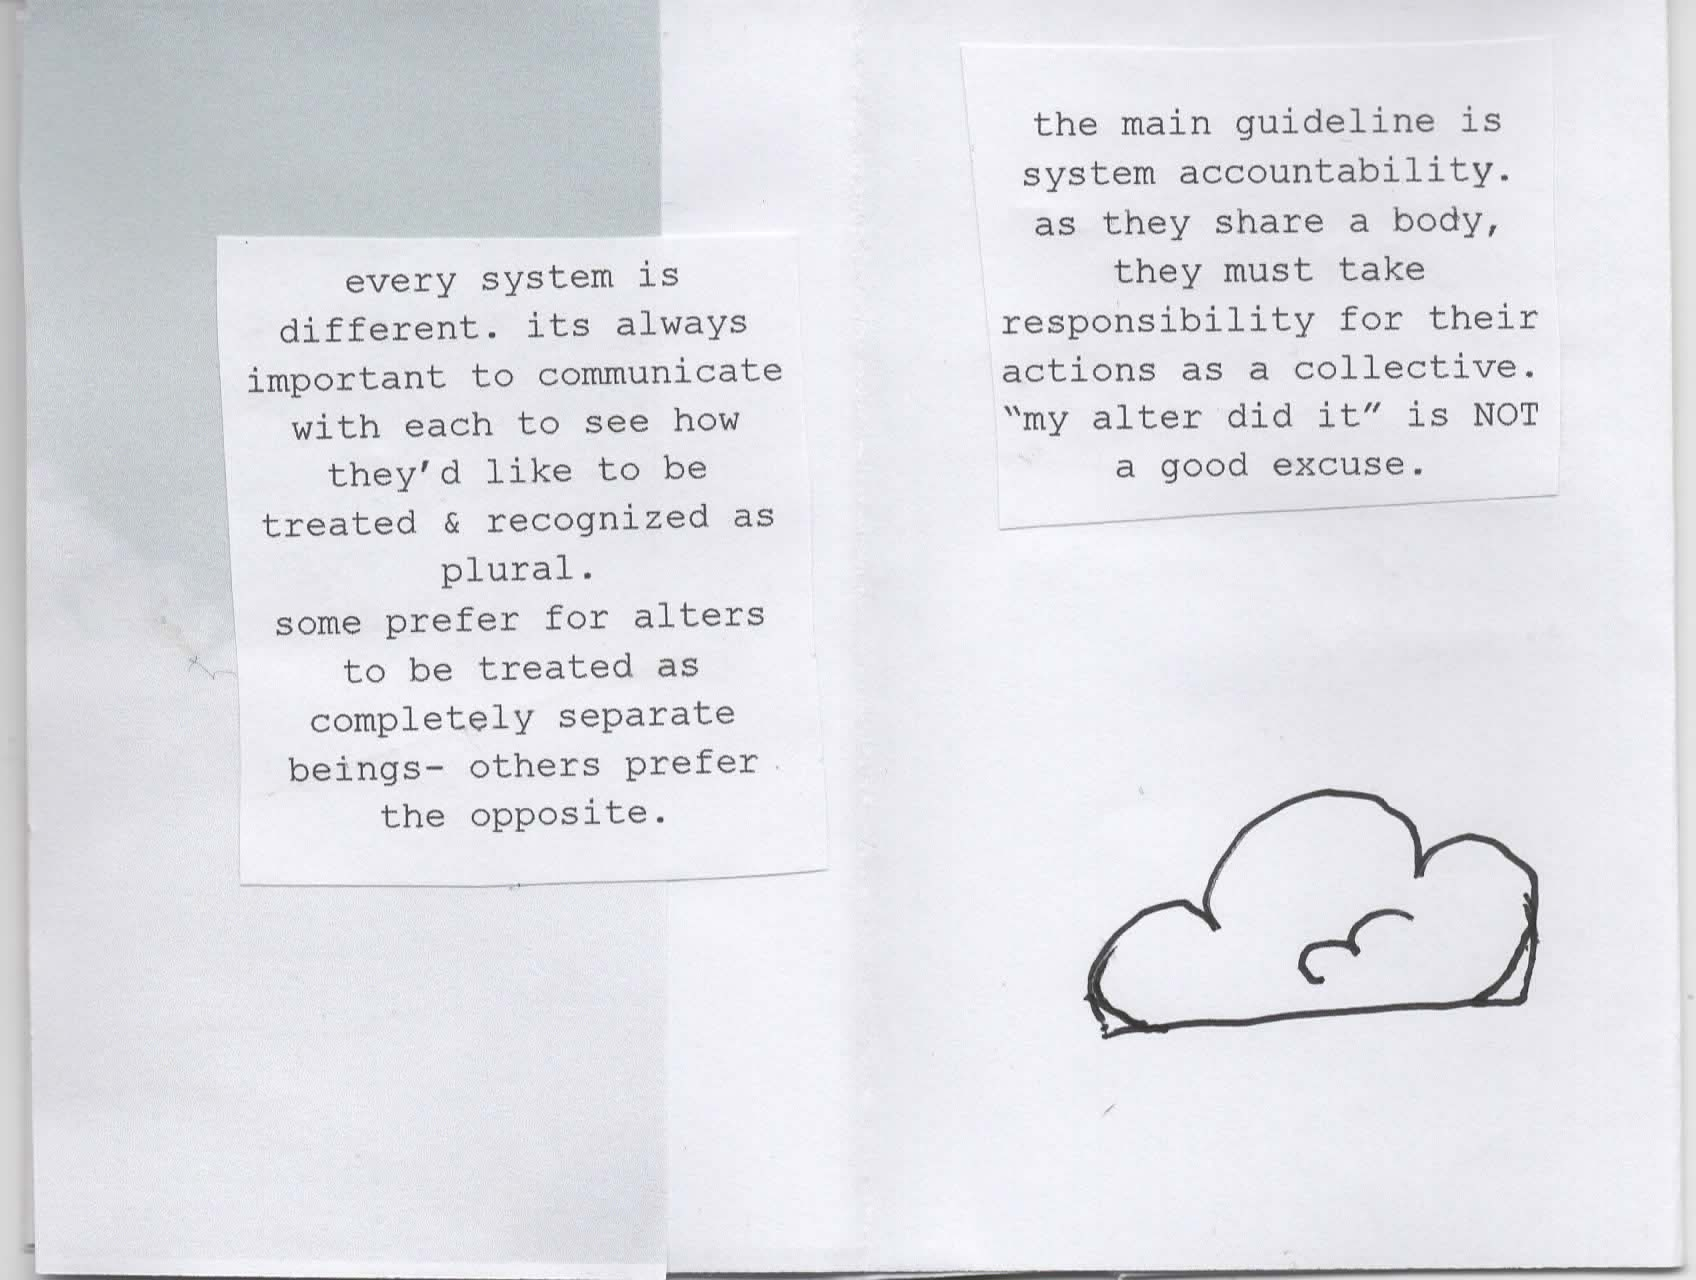 every system is
different. its always
important to communicate
with each to see how
they'd like to be
treated & recognized as
plural.
some prefer for alters
to be treated as
completely separate
beings- others prefer
the opposite.
the main guideline is
system accountability.
as they share a body,
they must take
responsibility for their
actions as a collective.
“my alter did it” is NOT
a good excuse.